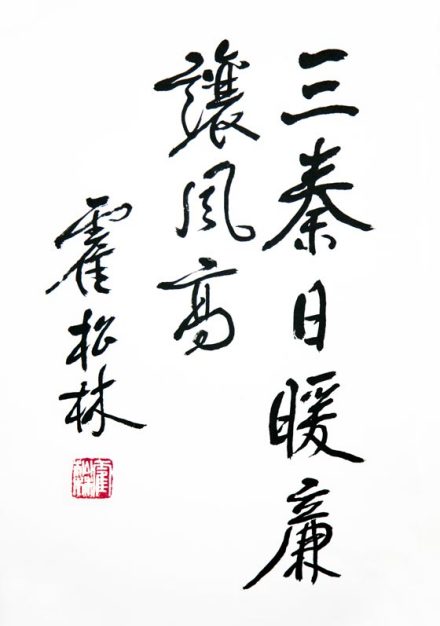 三秦日暖廉
讓风高
霍松林